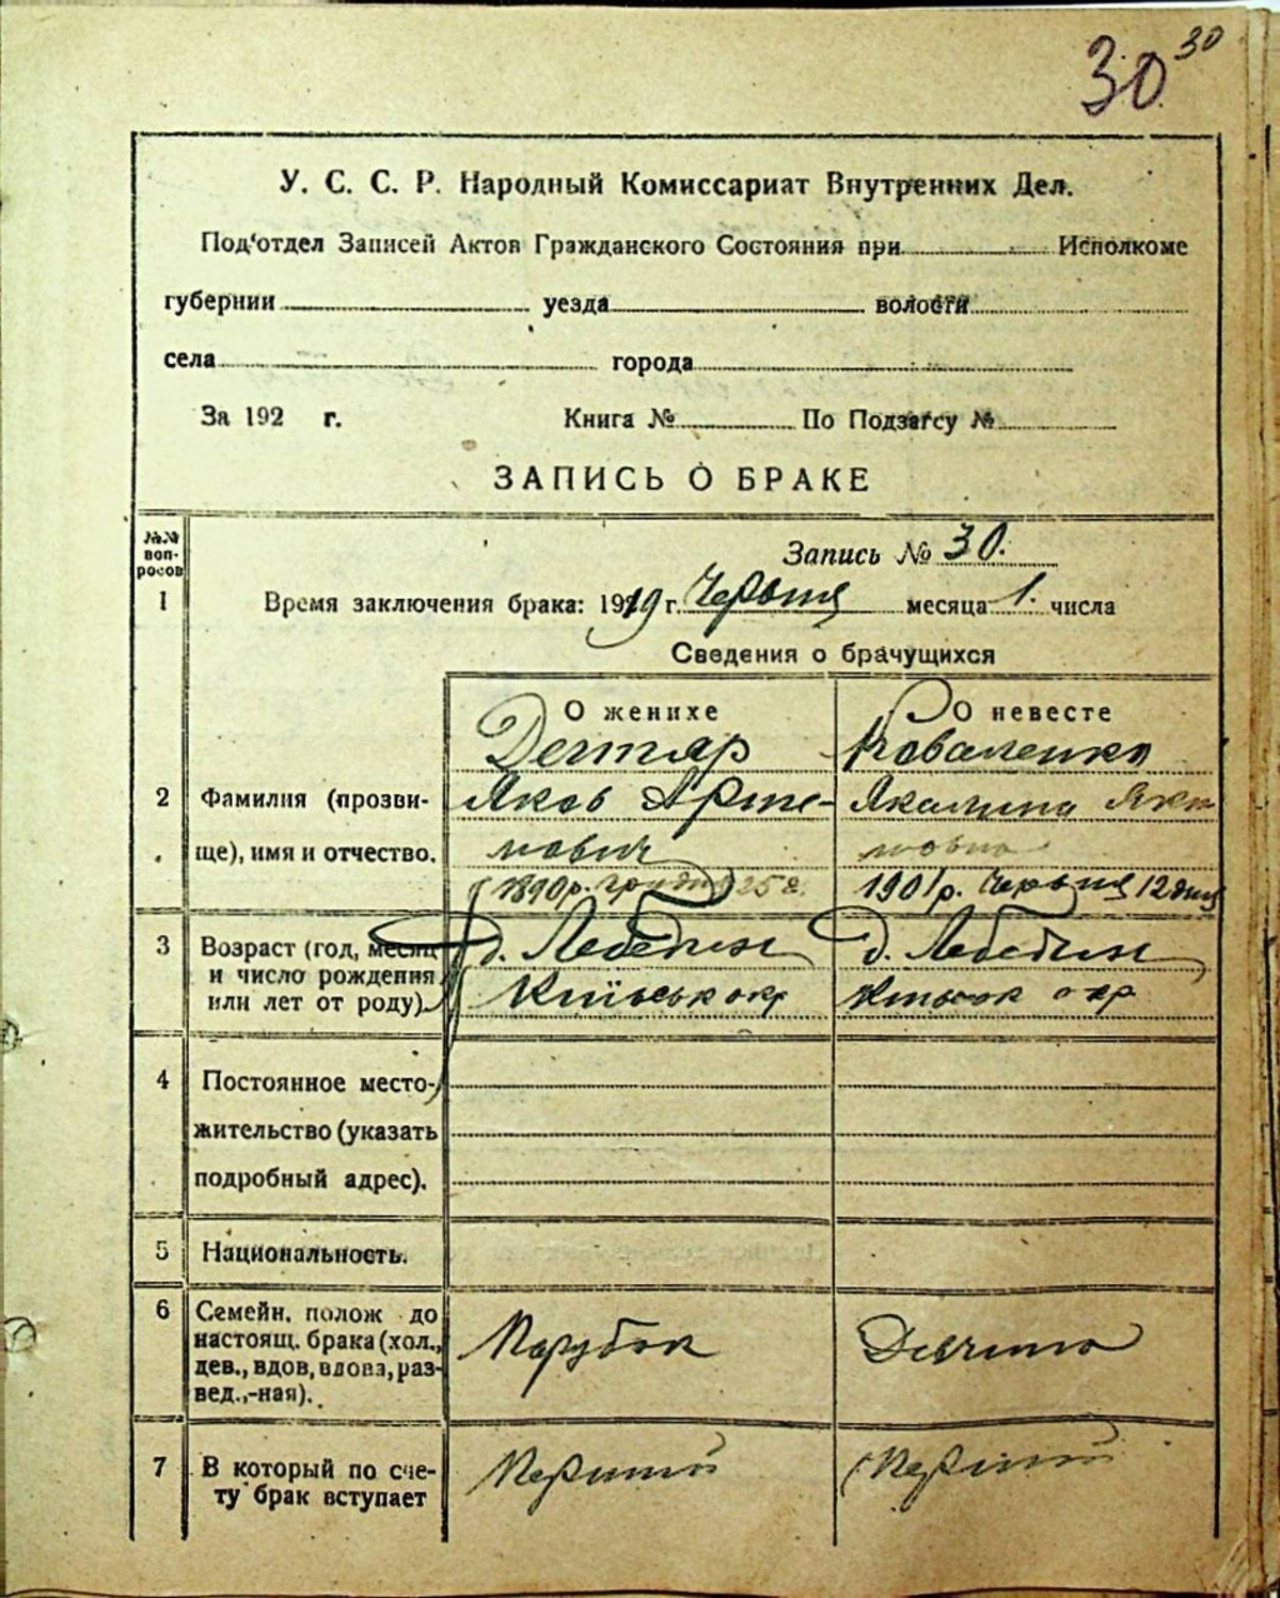 30 30
У. С. С. Р. Народный Комиссариат Внутренних Дел.
Под'отдел Записей Актов Гражданского Состояния при Исполкоме
губернии уезда волости
села города
За 192 г. Книга № По Подзагсу №
ЗАПИСЬ О БРАКЕ
№№ вопросов
Запись № 30.
1 Время заключения брака: 1919 г. Червня месяца 1. числа
Сведения о брачущихся
О женихе О невесте
Дегтяр Коваленко
2 Фамилия (прозви- Яков Арте- Якилина Яки
ще), имя и отчество. мович мовна
1890 р. грудня 25 д. 1901 р. Червня 12 дня
3 Возраст (год, месяц д. Лебедин д. Лебедин
и число рождения Київськ окр окр
или лет от роду).
4 Постоянное место-
жительство (указать
подробный адрес).
5 Национальность.
6 Семейн. полож до
настоящ. брака (хол., Парубок Дівчина
дев., вдов, вдова, раз-
вед.,-ная).
7 В который по сче- Перший Перший
ту брак вступает